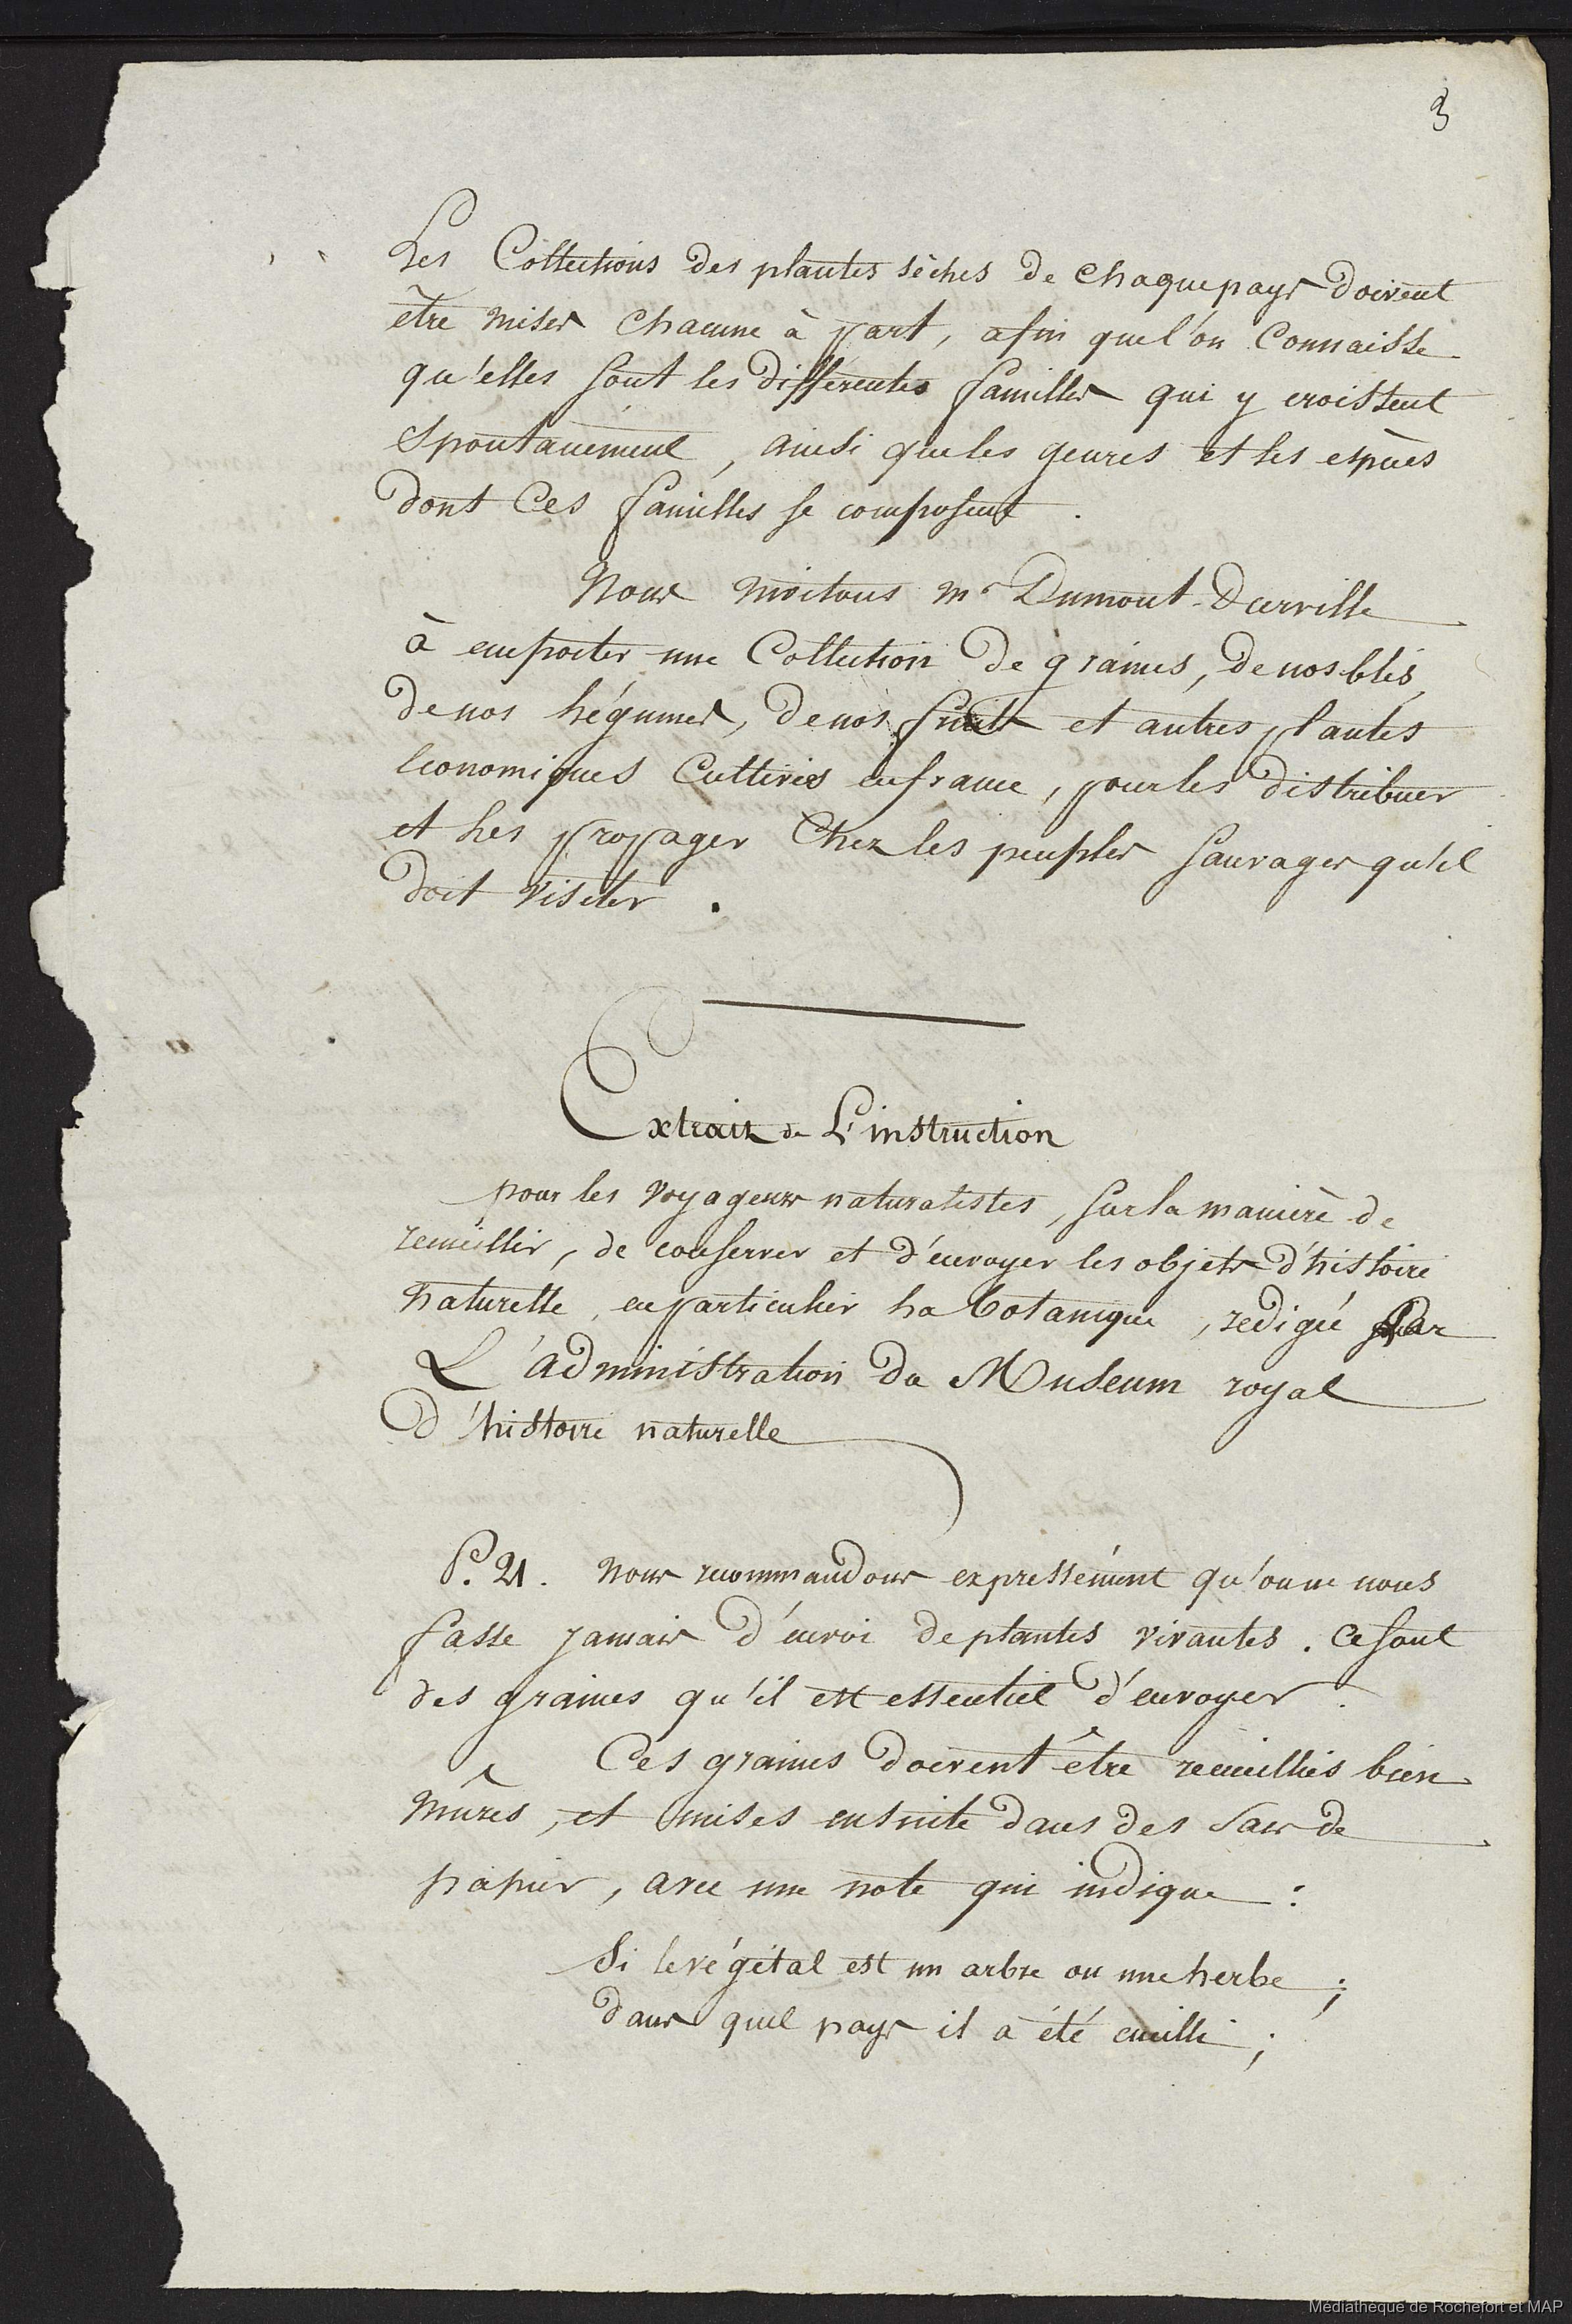 3
Les Collections des plantes sèches de chaque pays doivent
être mises chacune à part, afin que l'on Connaisse
qu'elles sont les différentes familles qui y croissent
Spontanement, ainsi que les genres et les espèces
dont Ces familles se composent.
Nous invitons Mr Dumont-Durville
à emporter une Collection de graines, de nos blés,
de nos légumes, de nos fruits et autres plantes
économiques Cultivées en france, pour les distribuer
et les propager Chez les peuples sauvages qu'il
doit visiter.
Extrait de L'instruction
pour les voyageurs naturalistes, sur la manière de
recueillir, de conserver et d'envoyer les objets d'histoire
naturelle, en particulier la botanique, redigée par
L'administration du Museum royal
d'histoire naturelle
P. 21. Nous recommandons expressément qu'on ne nous
fasse jamais d'envoi de plantes vivantes. Ce sont
des graines qu'il est essentiel d'envoyer.
Ces graines doivent être recueillies bien
mûres, et mises ensuite dans des sacs de
papier, avec une note qui indique :
Si le végétal est un arbre ou une herbe ;
dans quel pays il a été cueilli ;
Médiathèque de Rochefort et MAP